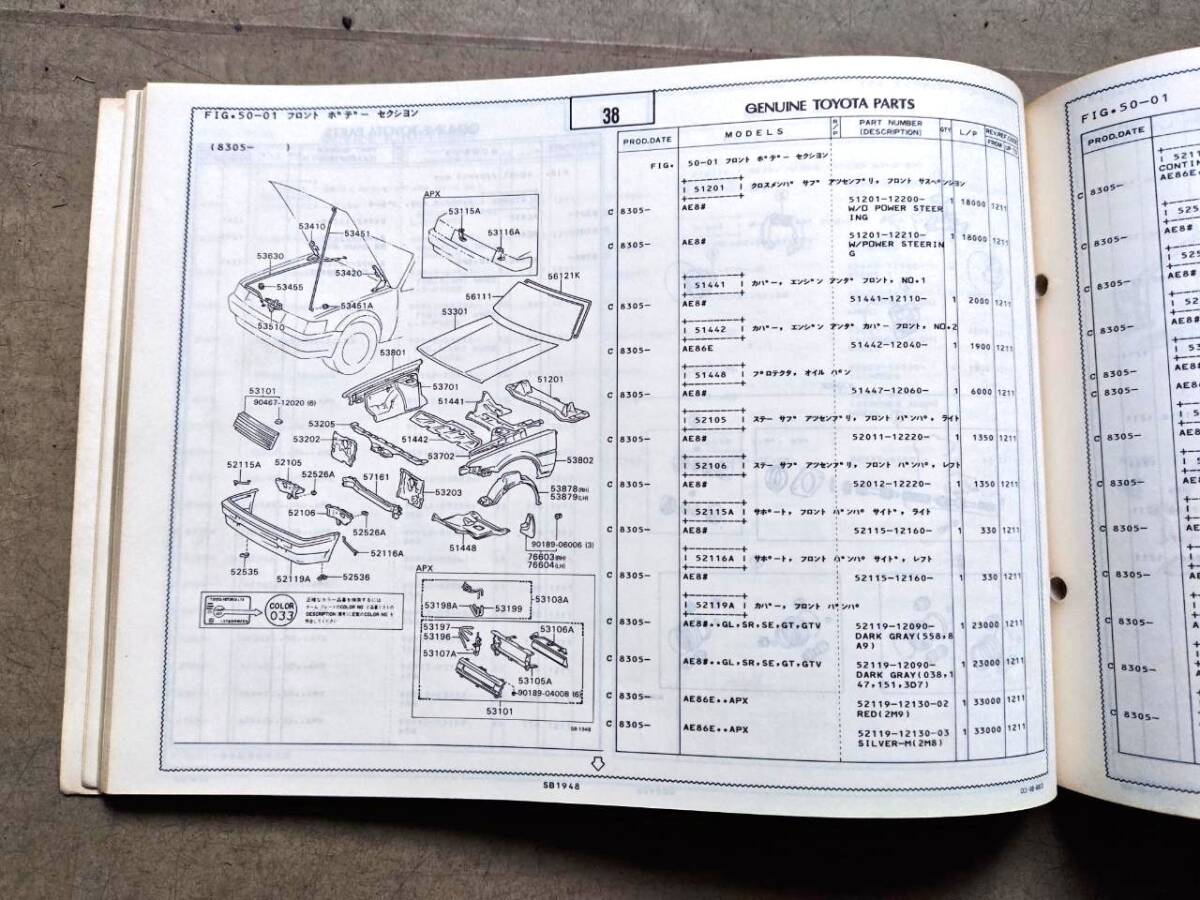 FIG.50-01 フロント ボデー セクション
(8305- )
38
GENUINE TOYOTA PARTS
APX
53115A
53116A
53410
53451
53630
53420
53455
53461A
53510
56121K
56111
53301
53801
53701
51201
51441
53101
90467-12020 (6)
53205
53202
51442
53702
53802
52115A
52105
52526A
57161
53203
53878(RH)
53879(LH)
52106
52526A
52116A
51448
90189-06006 (3)
76603(RH)
76604(LH)
52535
52119A
52536
COLOR
033
APX
53103A
53198A
53199
53197
53196
53107A
53106A
53105A
90189-04008 (6)
53101
SB1948
PROD.DATE
MODELS
PART NUMBER
(DESCRIPTION)
QTY
L/P
FIG. 50-01 フロント ボデー セクション
I 51201 I クロスメンバ サブ アツセンブリ, フロント サスペンション
C 8305- AE8# 51201-12200- 1 18000 1211
W/O POWER STEER
ING
C 8305- AE8# 51201-12210- 1 18000 1211
W/POWER STEERIN
G
I 51441 I カバー, エンジン アンダ フロント, NO.1
C 8305- AE8# 51441-12110- 1 2000 1211
I 51442 I カバー, エンジン アンダ カバー フロント, NO.2
C 8305- AE86E 51442-12040- 1 1900 1211
I 51448 I プロテクタ, オイル パン
C 8305- AE8# 51447-12060- 1 6000 1211
I 52105 I ステー サブ アツセンブリ, フロント バンパ, ライト
C 8305- AE8# 52011-12220- 1 1350 1211
I 52106 I ステー サブ アツセンブリ, フロント バンパ, レフト
C 8305- AE8# 52012-12220- 1 1350 1211
I 52115A I サポート, フロント バンパ サイド, ライト
C 8305- AE8# 52115-12160- 1 330 1211
I 52116A I サポート, フロント バンパ サイド, レフト
C 8305- AE8# 52115-12160- 1 330 1211
I 52119A I カバー, フロント バンパ
C 8305- AE8#..GL,SR,SE,GT,GTV 52119-12090- 1 23000 1211
DARK GRAY(558,8
A9)
C 8305- AE8#..GL,SR,SE,GT,GTV 52119-12090- 1 23000 1211
DARK GRAY(038,1
47,151,3D7)
C 8305- AE86E..APX 52119-12130-02 1 33000 1211
RED(2M9)
C 8305- AE86E..APX 52119-12130-03 1 33000 1211
SILVER-M(2M8)
SB1948
FIG.50-01
PROD.DATE
C 8305-
CONTIN
AE86E.
C 8305-
AE8#
C 8305-
C 8305-
C 8305-
C 8305-
C 8305-
C 8305-
C 8305-
C 8305-
C 8305-
C 8305-